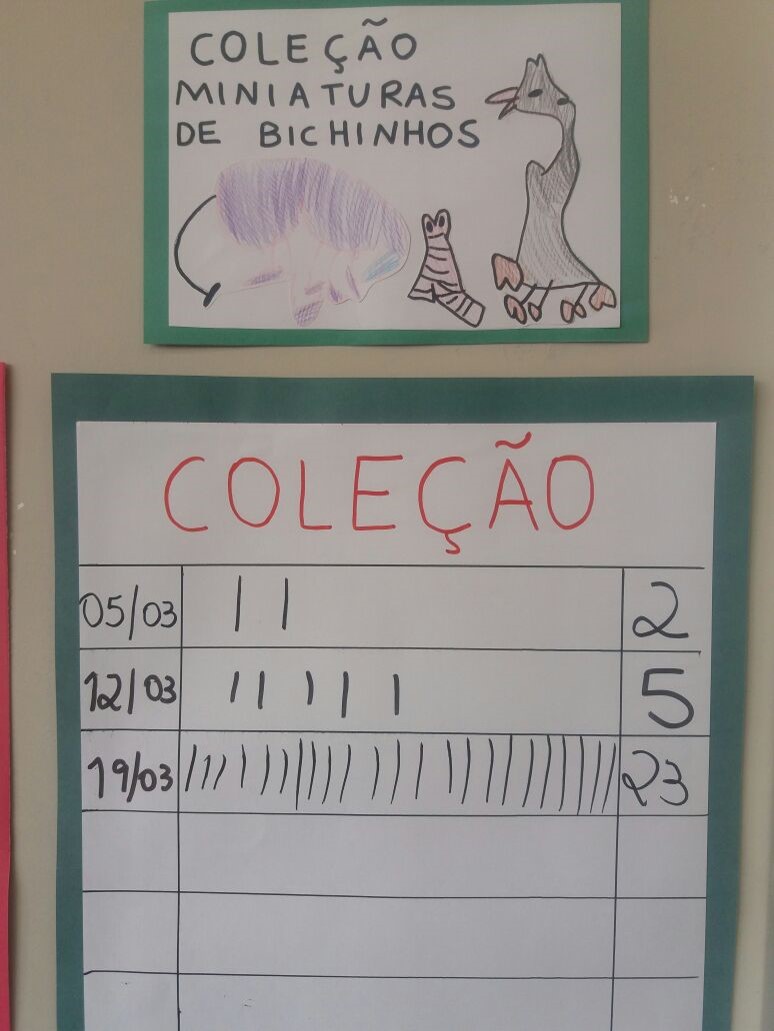 COLEÇÃO
MINIATURAS
DE BICHINHOS
COLEÇÃO
05/03 | | 2
12/03 | | | | | 5
19/03 | | | | | | | | | | | | | | | | | | | | | | | 23